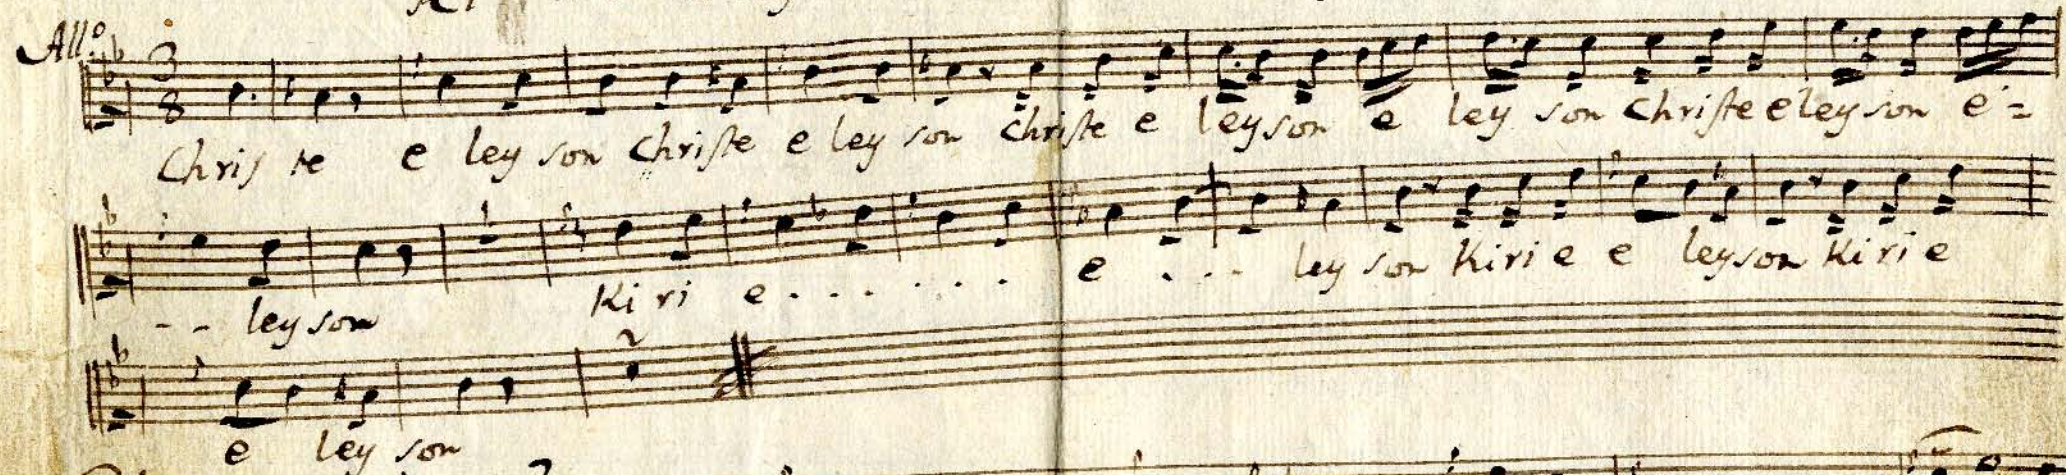 All.º
3
8
Chris te e ley son Christe e ley son Christe e leyson e ley son Christe eleyson e =
- - leyson Ki ri e . . . . . . e . . . ley son Kiri e e leyson Kiri e
e ley son